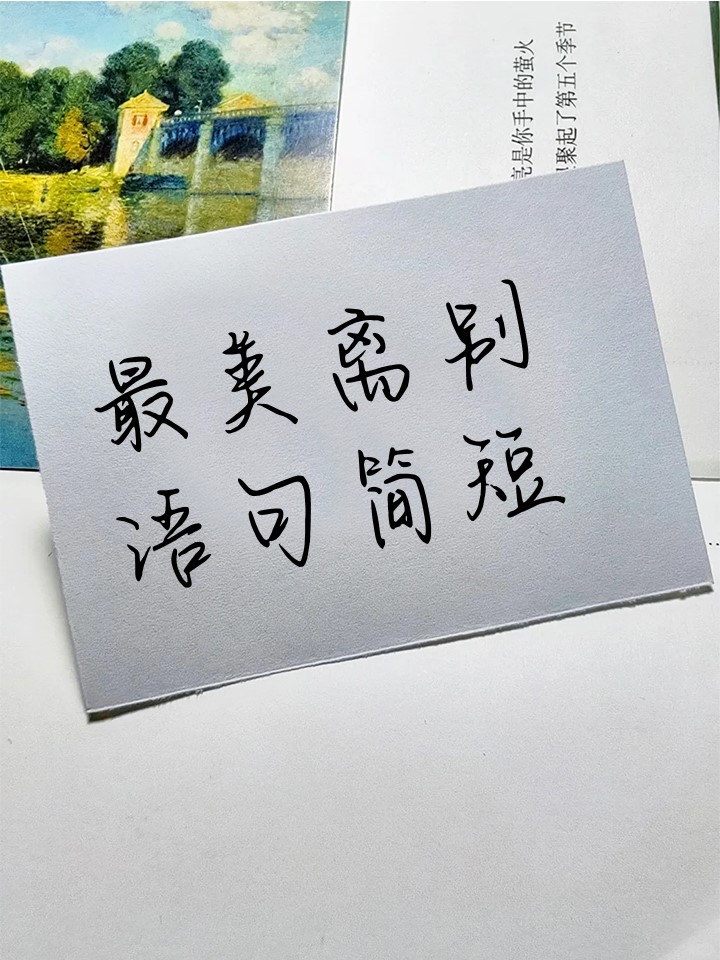 最美离别
语句简短
亮是你手中的萤火
聚起了第五个季节